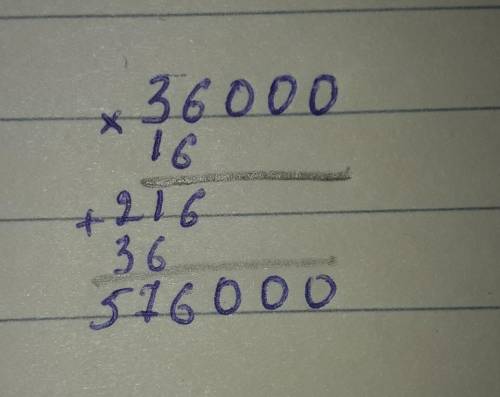 × 36000
16
+ 216
36
576000